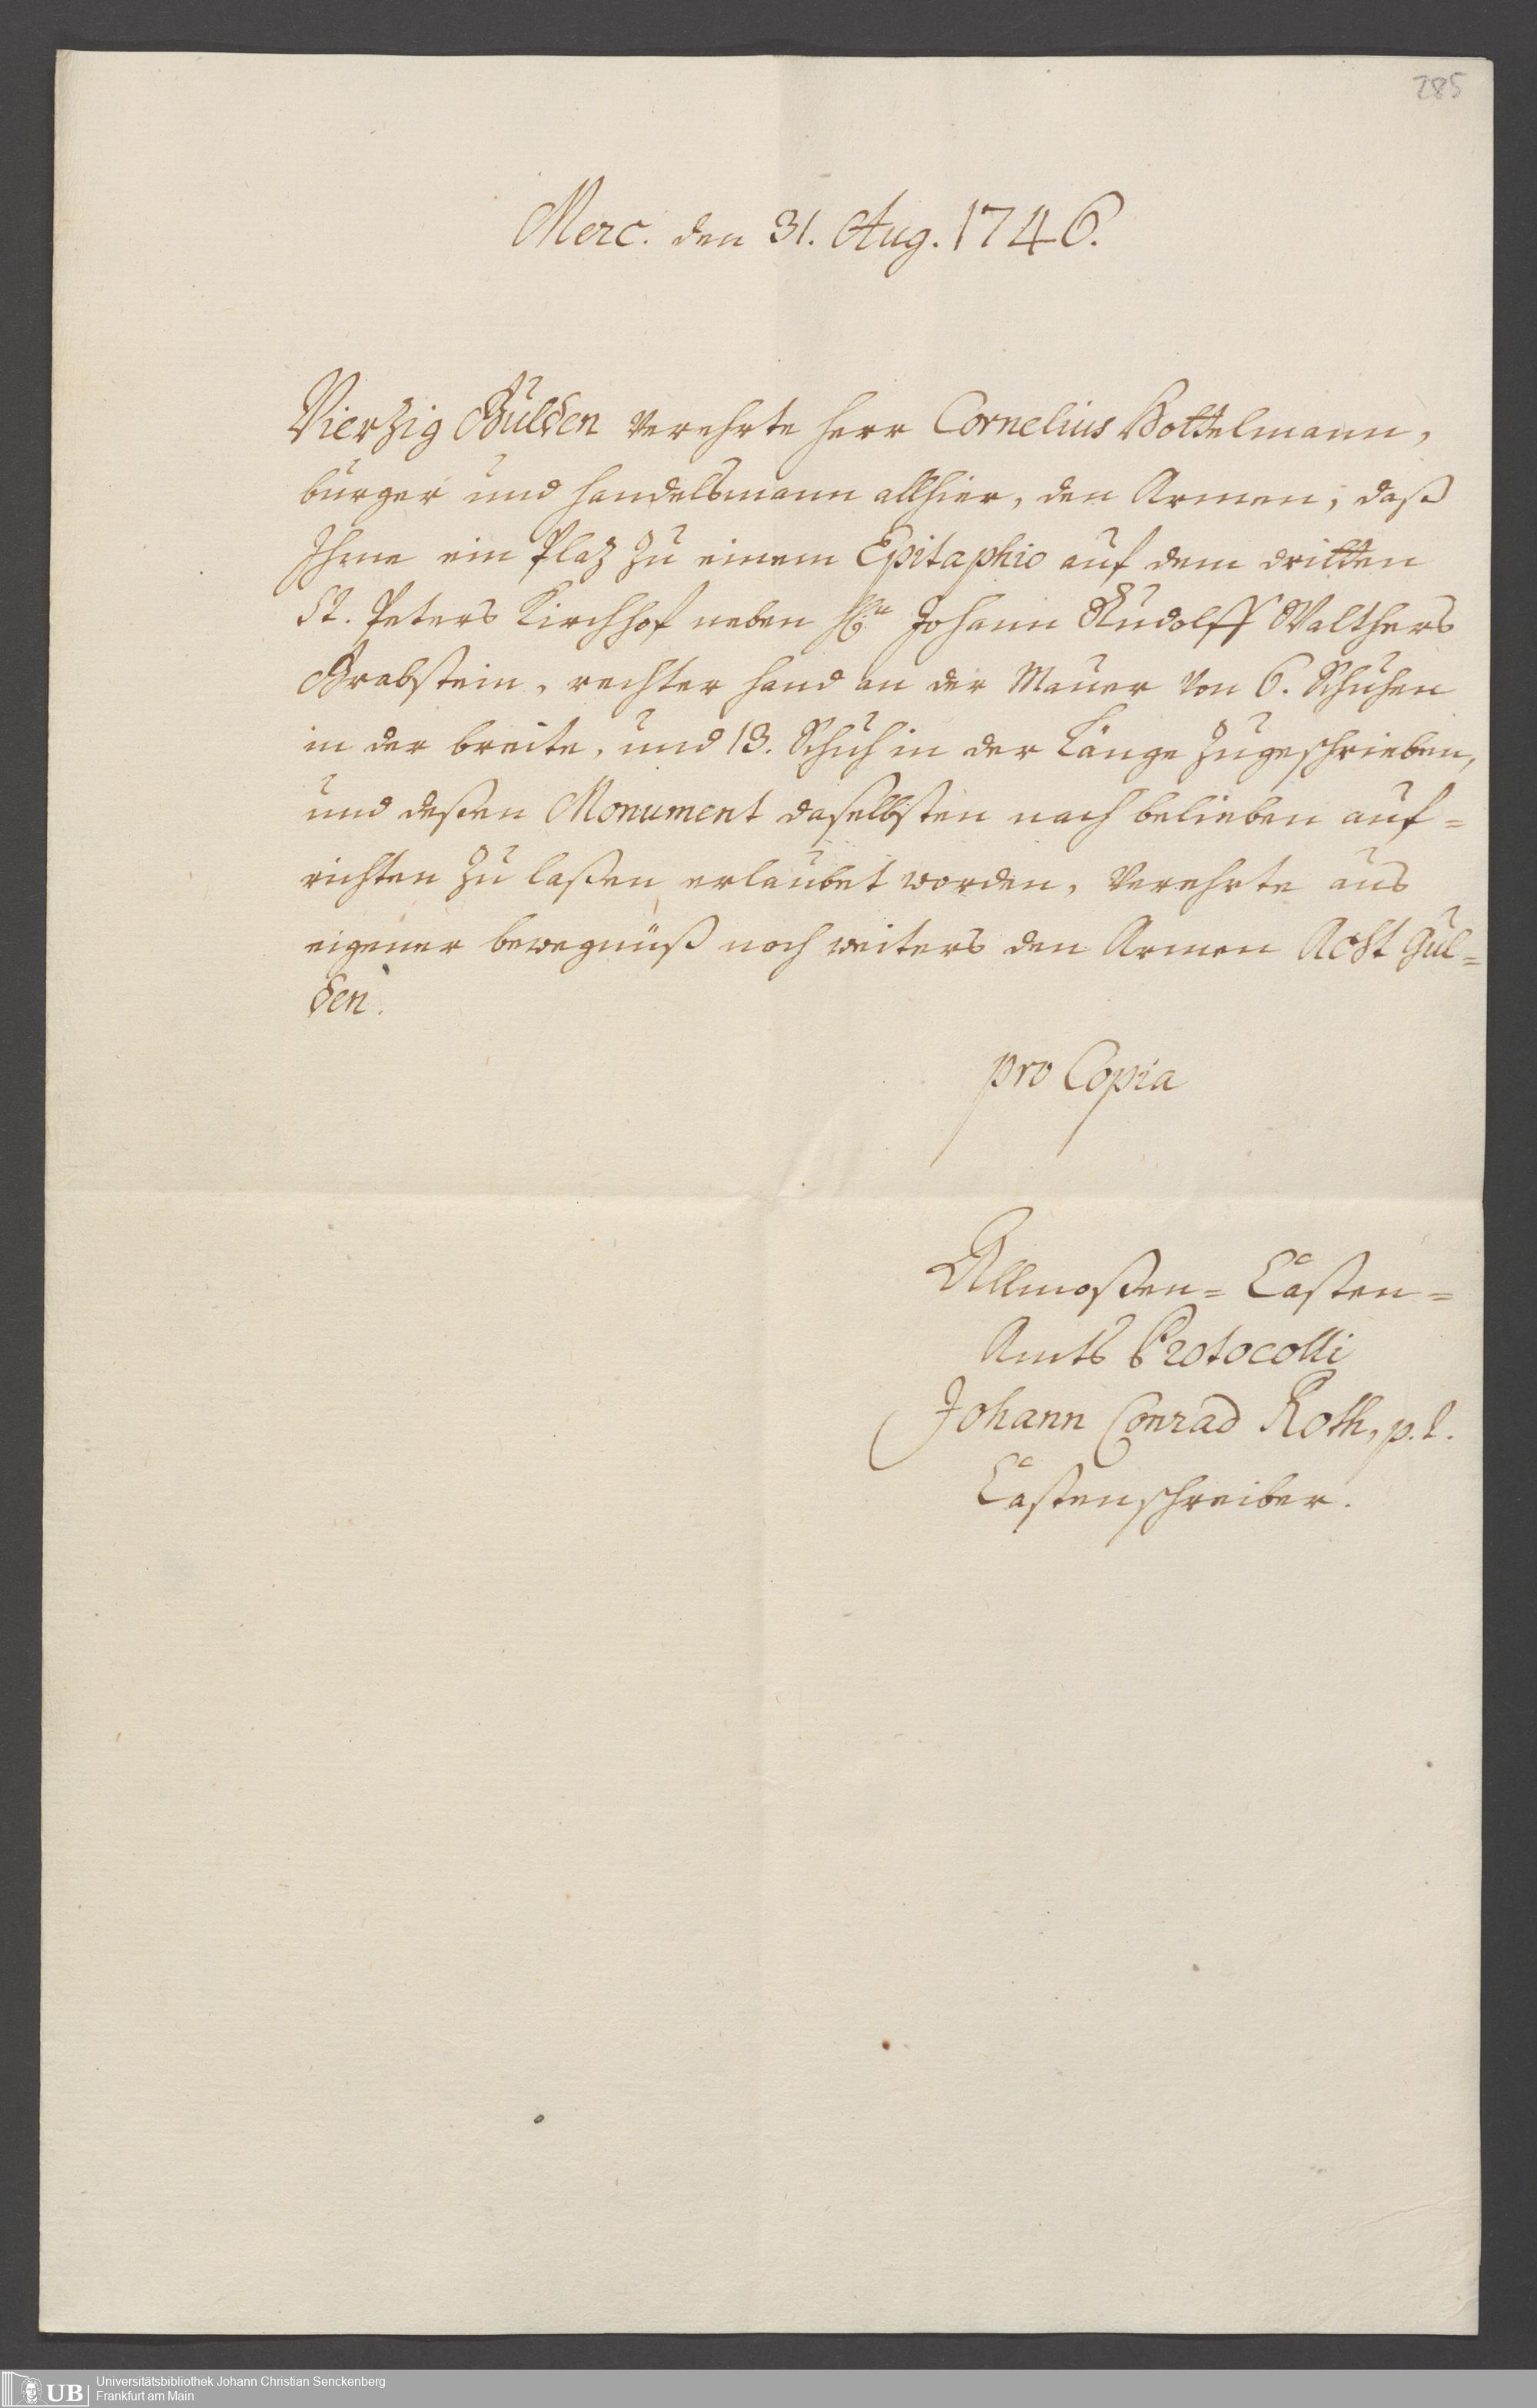 285
Merc. den 31. Aug. 1746.
Vierzig Gulden verehrte Herr Cornelius Bottelmann,
burger und Handelsmann allhier, den Armen, daß
Ihme ein Plaz zu einem Epitaphio auf dem dritten
St. Peters Kirchhof neben Hn Johann Rudolff Walthers
Grabstein, rechter Hand an der Mauer von 6. Schuhen
in der breite, und 13. Schuh in der Länge zugeschrieben,
und deßen Monument daselbsten nach belieben auf=
richten zu laßen erlaubet worden, verehrte aus
eigener bewegnüß noch weiters den Armen Acht Gul=
den.
pro Copia
Allmoßen= Casten=
Amts Protocolli
Johann Conrad Roth, p.t.
Castenschreiber.
UB
Universitätsbibliothek Johann Christian Senckenberg
Frankfurt am Main